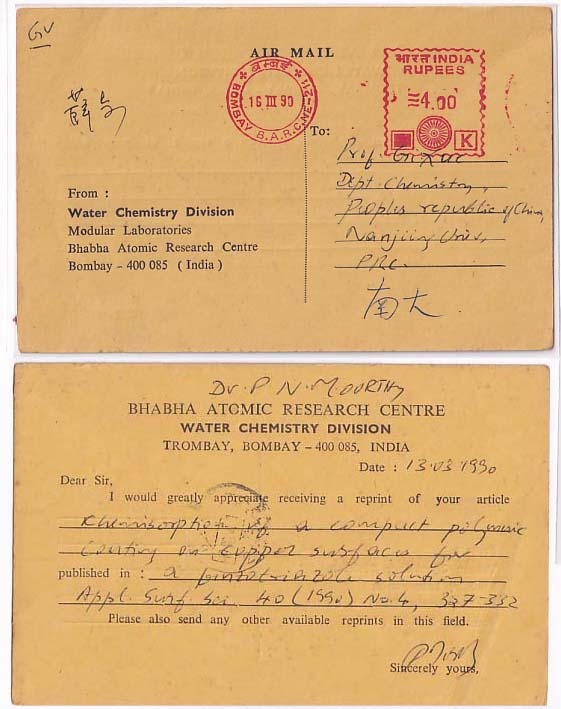 GV
AIR MAIL
बम्बई
BOMBAY B.A.R.C.
16 III 90
भारत INDIA
RUPEES
4.00
K
To:
Prof.
Dept. Chemistry,
Peoples republic of China,
Nanjing Univ,
PRC.
南大
From :
Water Chemistry Division
Modular Laboratories
Bhabha Atomic Research Centre
Bombay - 400 085 ( India )
Dr. P N. MOORTHY
BHABHA ATOMIC RESEARCH CENTRE
WATER CHEMISTRY DIVISION
TROMBAY, BOMBAY - 400 085, INDIA
Date : 13.03 1990
Dear Sir,
I would greatly appreciate receiving a reprint of your article
Chemisorption of a compact polymeric
coating on copper surfaces from
published in : a solution
Appl. Surf. Sci. 40 (1990) No.4, 327-332
Please also send any other available reprints in this field.
Sincerely yours,